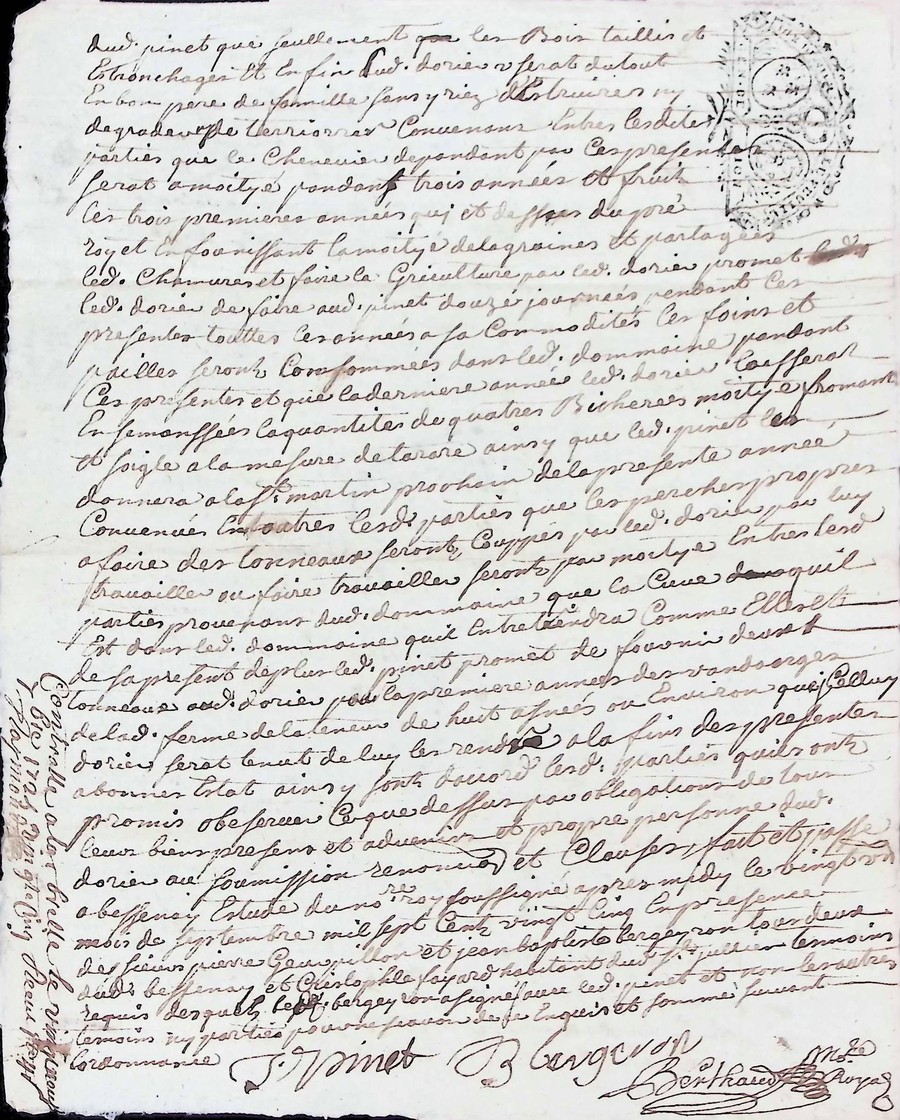 dud. pinet que seullement les Bois taillis et
Estronchages Et Enfin led. dorier userat du tout
En bon pere de famille sans y riez destruires ny
degrader de terriorrer Convenant Entres lesdites
parties que le Chenevier depandant par ces presentes
serat a moityé pandant trois années et fruit
les trois premieres années qui et dessus du pré
roy et En fournissant la moityé de la graines et partagées
led. Chanures et faire la Griculture par led. dorier promet
led. dorier de faire aud. pinet douze journées pendant Ces
presentes touttes les années a sa Commodités les foins et
pailles seront Consommées dans led. dommaine pandant
Ces presentes et que la derniere année led. dorier laisserat
Ensemanssées la quantités de quatres Bicherées moitye fromant
et soigle a la mesure de tarare ainsy que led. pinet les
donnera a la St. martin prochain de la presente année,
Convenués Entoutres lesd. parties que les perches propres
a faire des tonneaux seront Couppés par led. dorier par luy
travailler ou faire travailler seront par moitye Entres lesd
parties provenans dud. dommaine que la Cuve quil
Est dans led. dommaine quil Entretiendra Comme Elles et
de sa present deplus led. pinet promet de fournir deux
tonneaux aud. dorier par la premiere années des vandanges
de lad. ferme de la teneur de huit asnées ou Environ que Celluy
dorier serat tenut de luy les rendre a la fins des presentes
a bonnes Estat ainsy sont daccord lesd. parties quils ont
promis observer Ceque dessus par obligations de tous
leurs biens presens et advenirs et propre personne dud.
dorier au soumission renoncion et Clauses, fait et passé
a bessenay Estude du nore. roy soussigné apres midy le vingt
mois de septembre mil sept Cent vingt Cinq En presence
des sieurs pierre et jean baptiste bergeyron tous deux
dud. bessenay et Christophle fayard habitant dud. St. jullien temoins
requis desquels led. bergeyron a signé avec led. pinet et non les autres
temoins ny parties pour ne scavoir de ce Enquis et sommé suivant
lordonnance
J. Pinet B bergeron
Berthaud Nre Royal
Controlle a la brelle le
7bre 1725